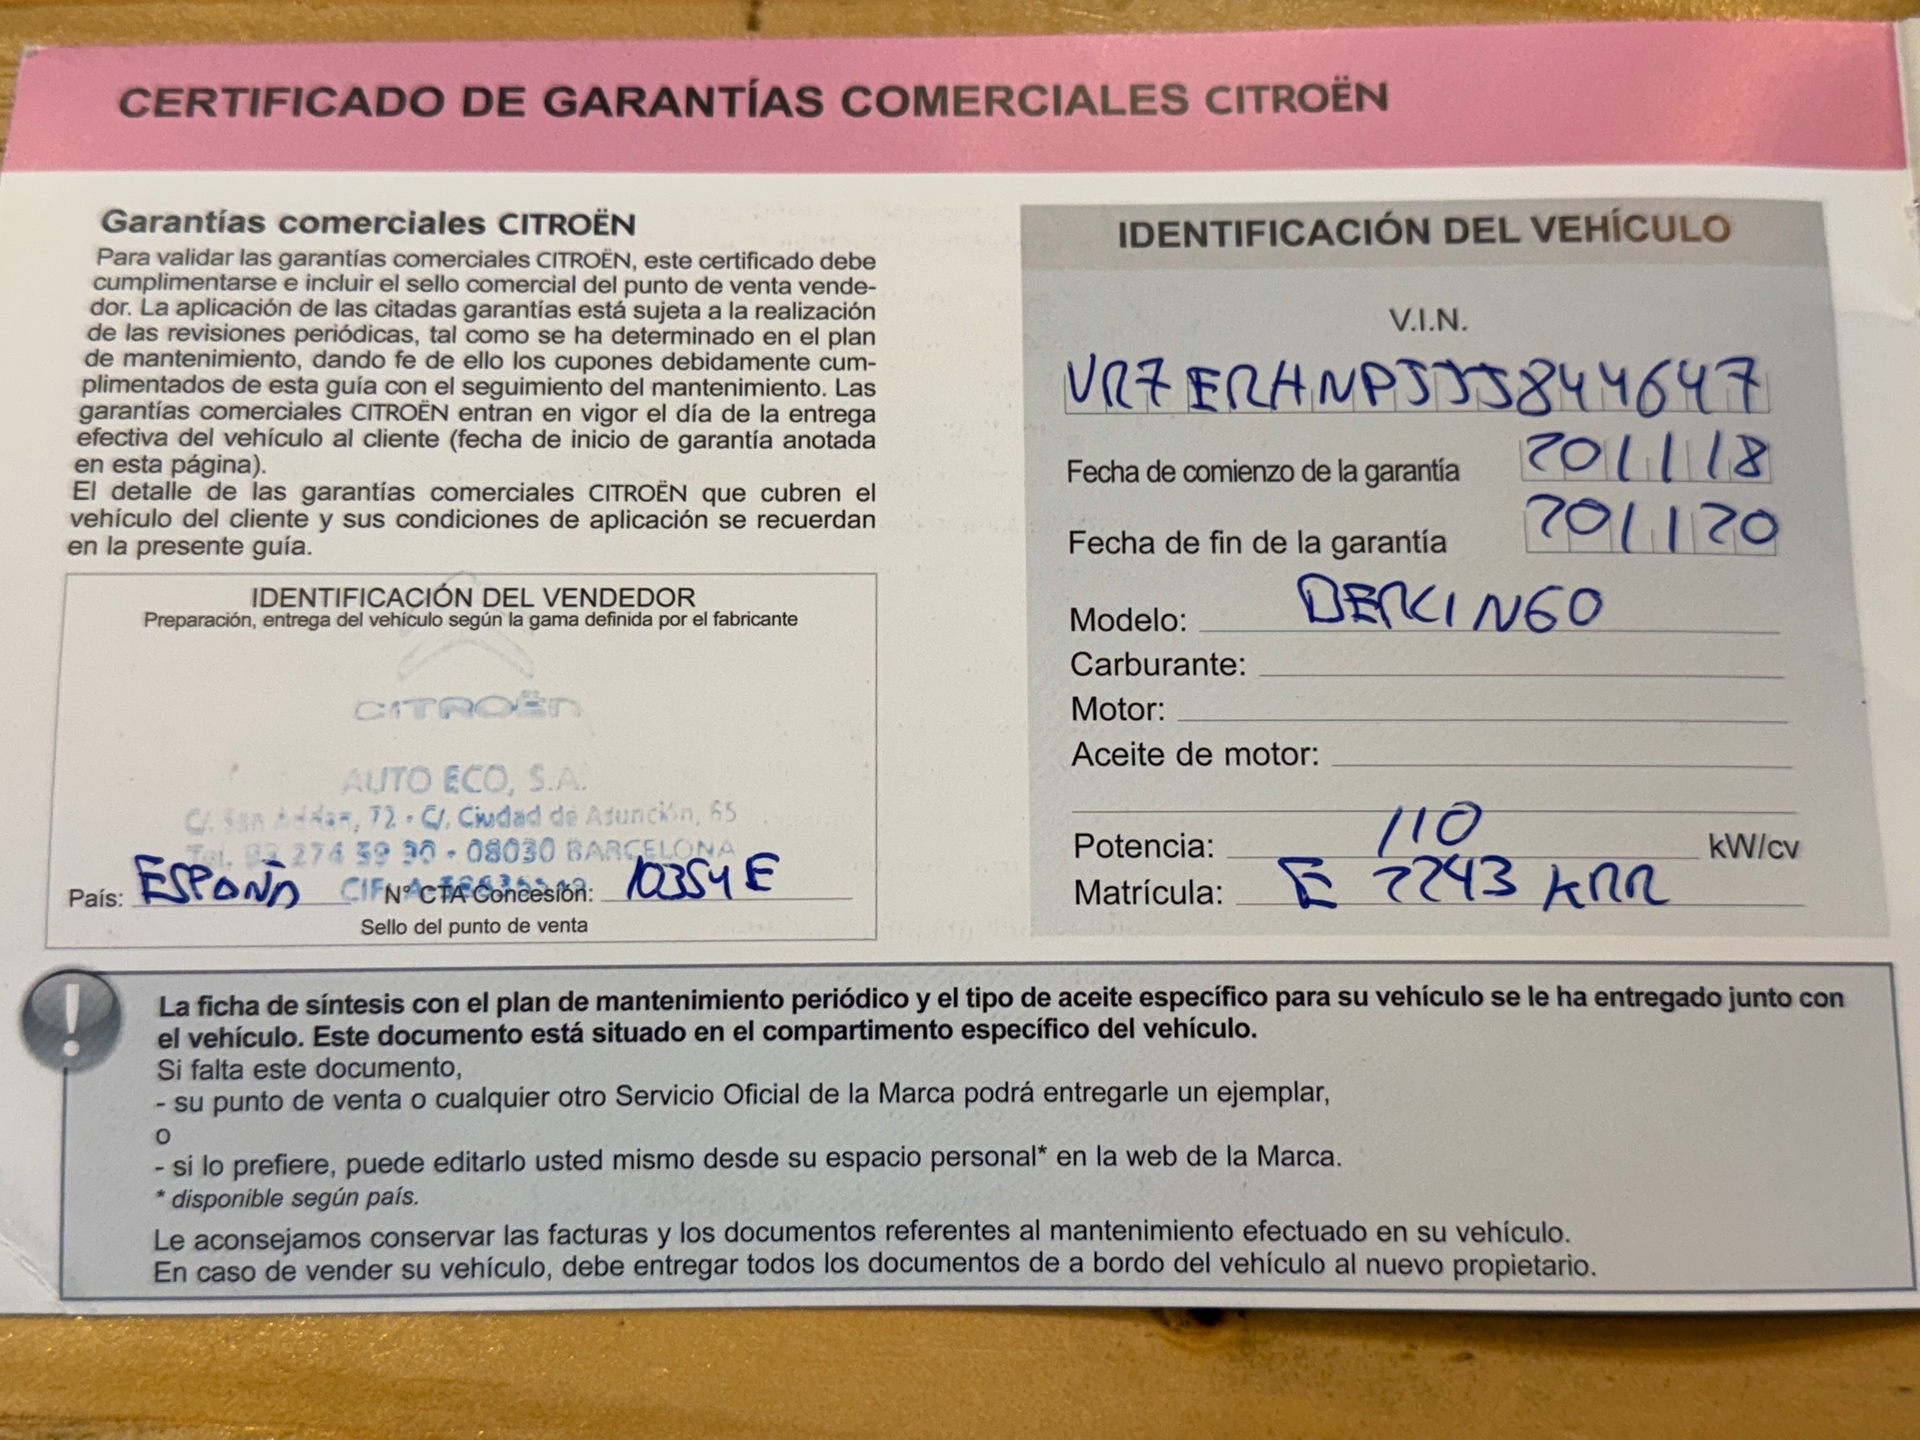 CERTIFICADO DE GARANTÍAS COMERCIALES CITROËN
Garantías comerciales CITROËN
Para validar las garantías comerciales CITROËN, este certificado debe
cumplimentarse e incluir el sello comercial del punto de venta vende-
dor. La aplicación de las citadas garantías está sujeta a la realización
de las revisiones periódicas, tal como se ha determinado en el plan
de mantenimiento, dando fe de ello los cupones debidamente cum-
plimentados de esta guía con el seguimiento del mantenimiento. Las
garantías comerciales CITROËN entran en vigor el día de la entrega
efectiva del vehículo al cliente (fecha de inicio de garantía anotada
en esta página).
El detalle de las garantías comerciales CITROËN que cubren el
vehículo del cliente y sus condiciones de aplicación se recuerdan
en la presente guía.
IDENTIFICACIÓN DEL VENDEDOR
Preparación, entrega del vehículo según la gama definida por el fabricante
CITROËN
AUTO ECO, S.A.
C/. San Adrian, 72 - C/. Ciudad de Asunción, 65
Tel. 93 274 59 90 - 08030 BARCELONA
CIF
País: ESPAÑA N° CTA Concesión: 10354E
Sello del punto de venta
IDENTIFICACIÓN DEL VEHÍCULO
V.I.N.
VR7ERHNPJJJ844647
Fecha de comienzo de la garantía 201118
Fecha de fin de la garantía 201120
Modelo: BERLINGO
Carburante:
Motor:
Aceite de motor:
Potencia: 110 kW/cv
Matrícula: E 2243 KRR
La ficha de síntesis con el plan de mantenimiento periódico y el tipo de aceite específico para su vehículo se le ha entregado junto con
el vehículo. Este documento está situado en el compartimento específico del vehículo.
Si falta este documento,
- su punto de venta o cualquier otro Servicio Oficial de la Marca podrá entregarle un ejemplar,
o
- si lo prefiere, puede editarlo usted mismo desde su espacio personal* en la web de la Marca.
* disponible según país.
Le aconsejamos conservar las facturas y los documentos referentes al mantenimiento efectuado en su vehículo.
En caso de vender su vehículo, debe entregar todos los documentos de a bordo del vehículo al nuevo propietario.